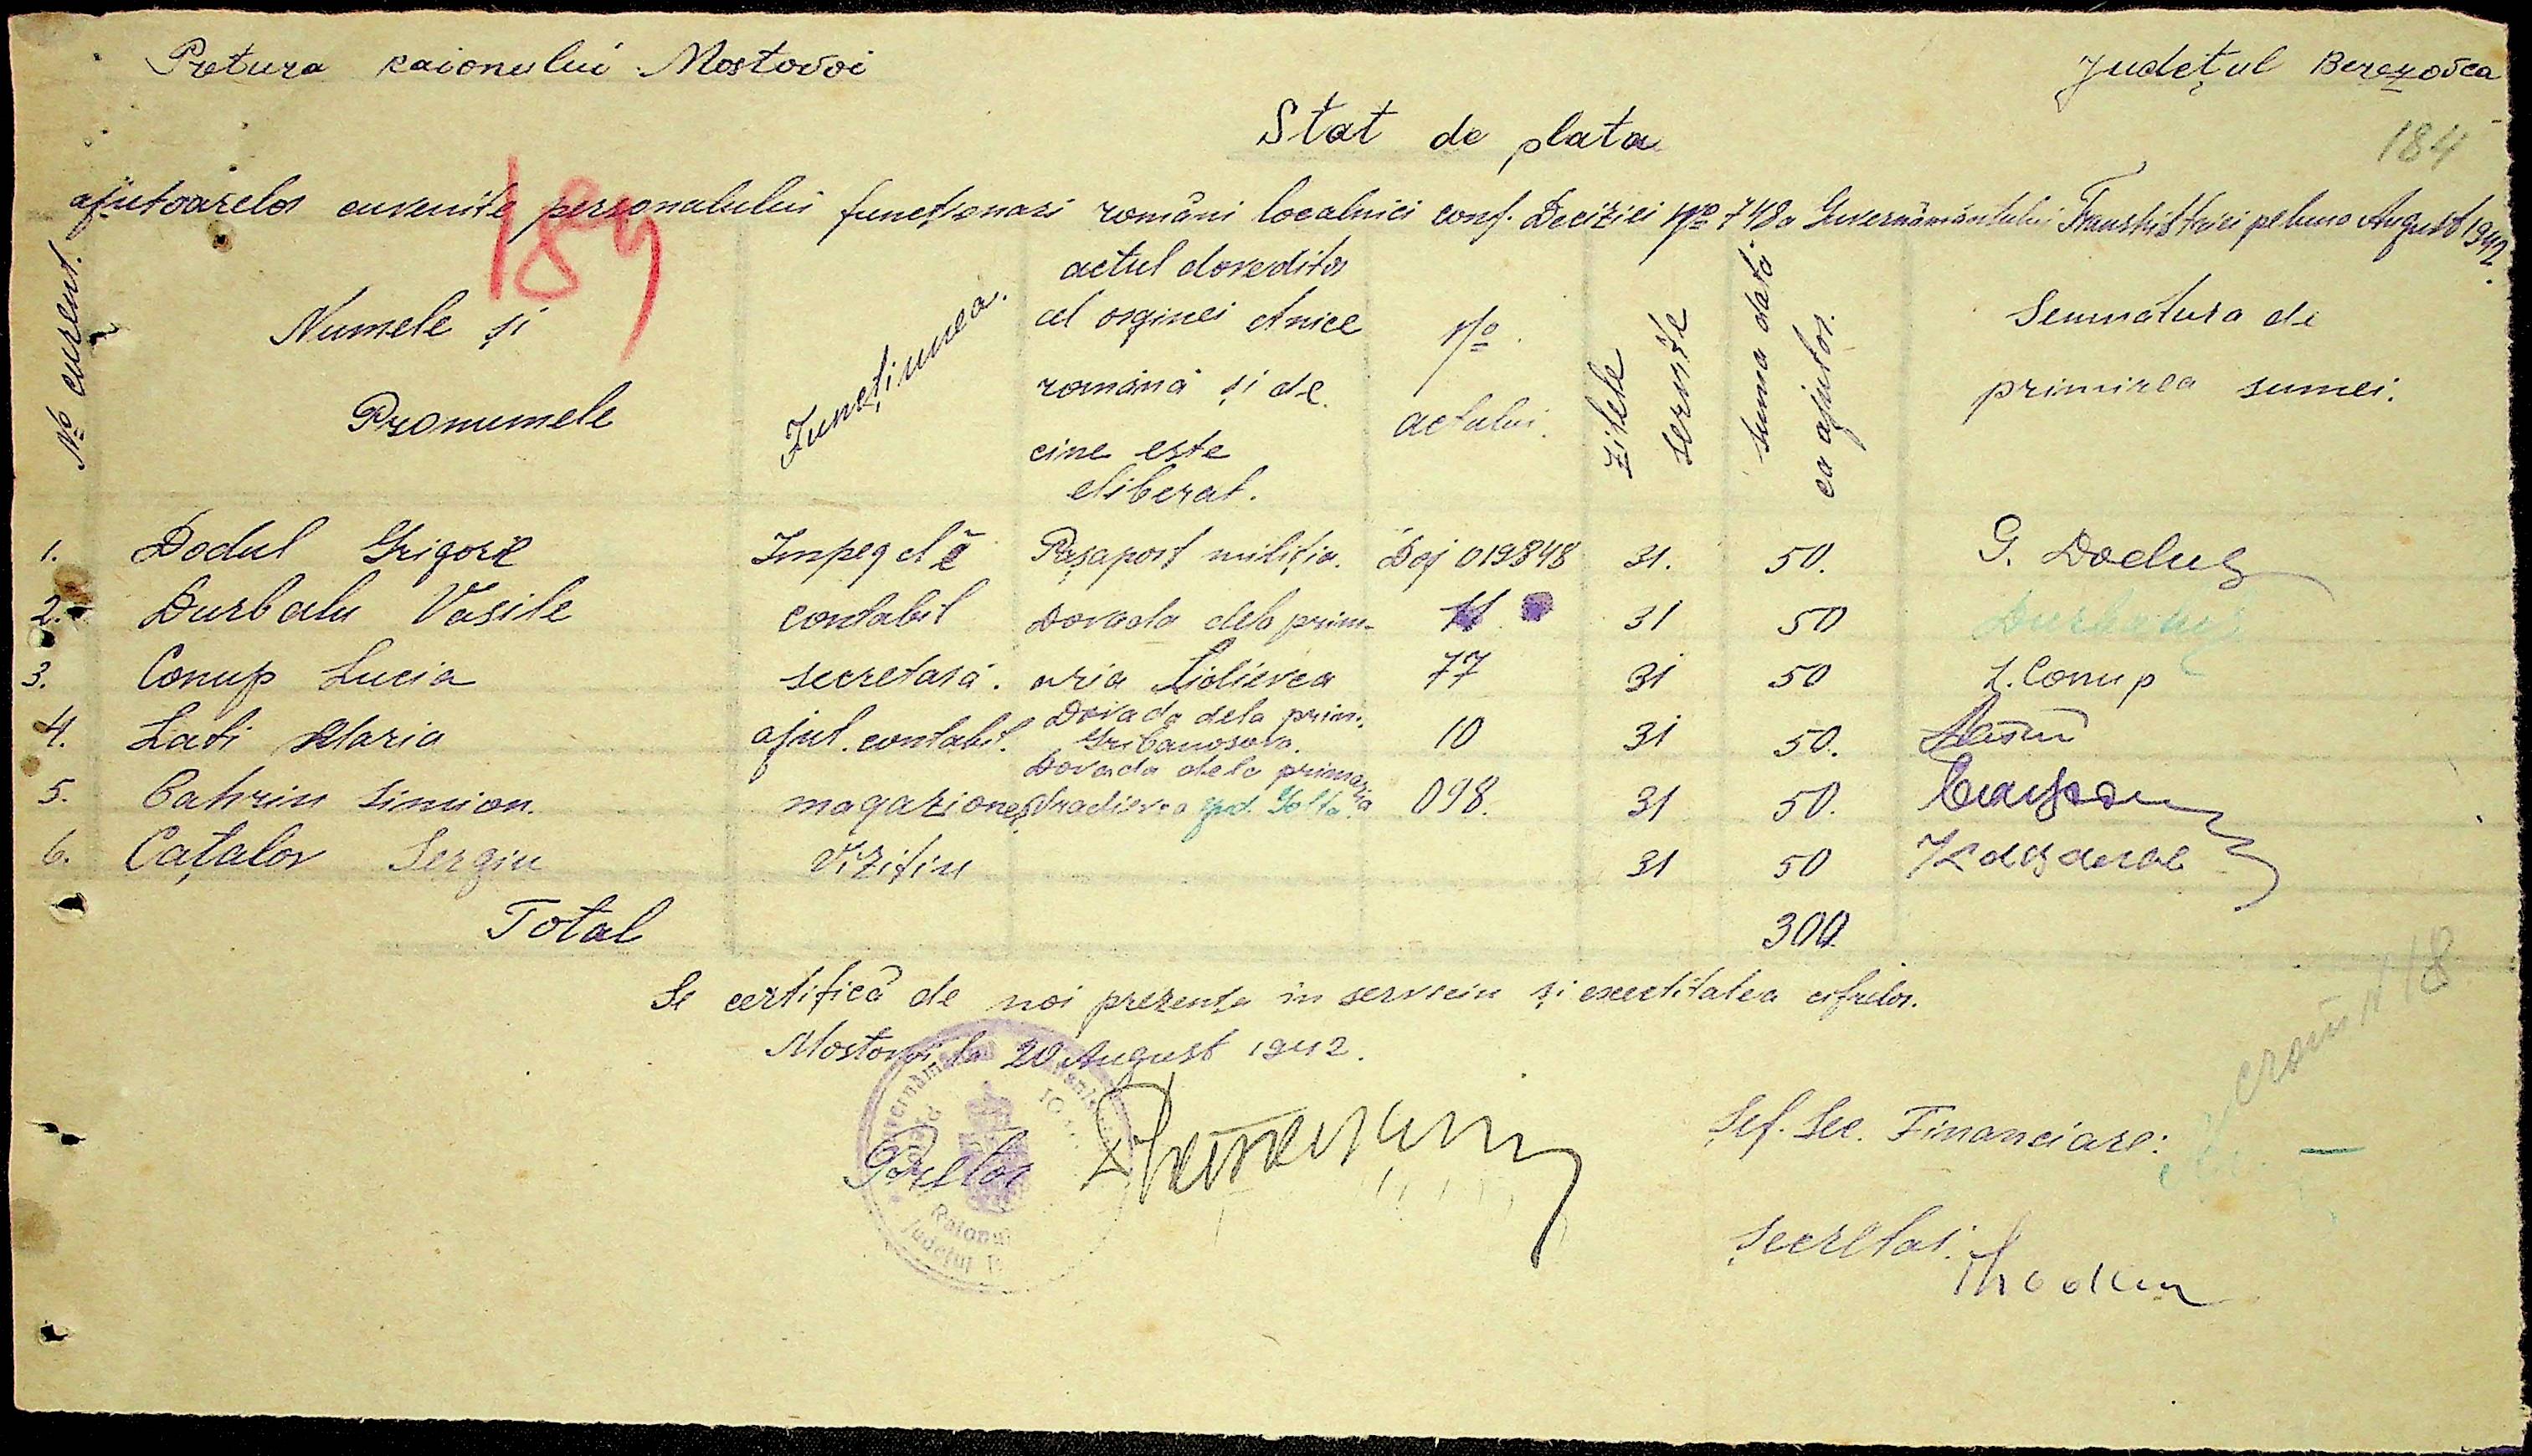 Pretura raionului Mostovoi
Județul Berezovca
Stat de plata
184
ajutoarelor cuvenite personalului funcționari români localnici conf. Deciziei No 748 a Guvernământului Transnistriei pe luna August 1942.
189
No curent.
Numele și
Pronumele
Funcțiunea.
actul doveditor
al orginei etnice
română și de
cine este
eliberat.
No
actului.
Zilele
servite
suma data
ca ajutor.
Semnătura de
primirea sumei.
1. Dodul Grigorie Impeg cl ē Pașaport miliția. Doj 019848 31. 50. G. Dodul
2. Durbalu Vasile contabil Dovada dela prim- 11 31 50
3. Conup Lucia secretară. aria Lidievca 77 31 50 L. Conup
4. Lati Maria ajut. contabil. Dovada dela prim. 10 31 50.
Gribanosova.
5. Cahrin Simion. magazioner Dovada dela primaria 098. 31 50.
jud. Golta.
6. Cațalov Sergiu Vizitiu 31 50
Total 300.
Se certifică de noi prezența în serviciu și exectitatea cifrelor.
Mostovoi, la 20 August 1942.
Pretor
Raionul
Județul
Șef. Sec. Financiare:
Secretar.